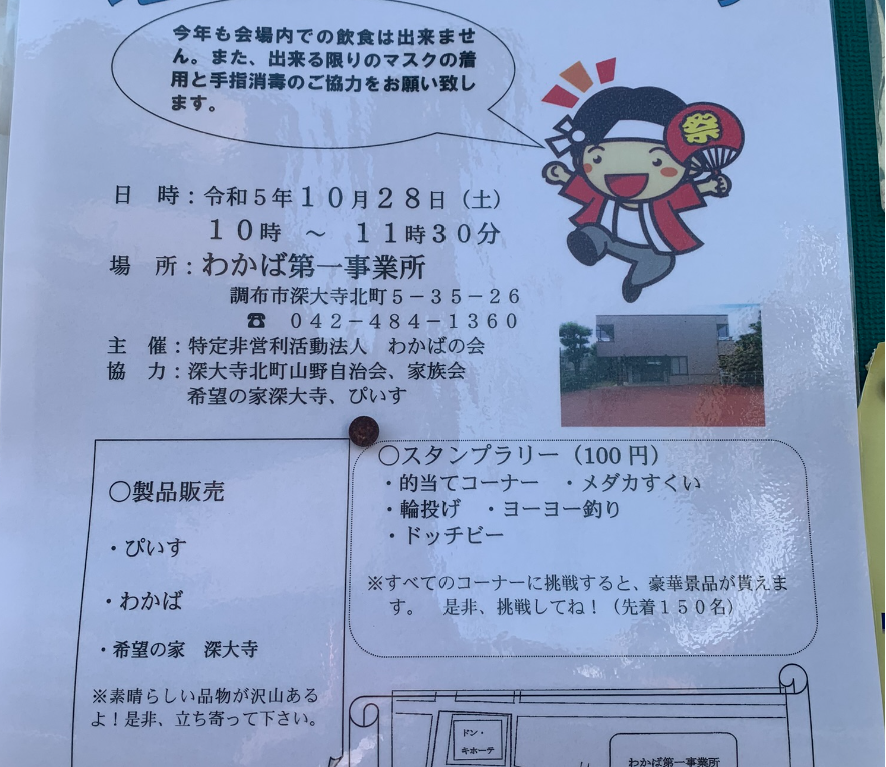 今年も会場内での飲食は出来ませ
ん。また、出来る限りのマスクの着
用と手指消毒のご協力をお願い致し
ます。
祭
日　時：令和５年１０月２８日（土）
１０時　～　１１時３０分
場　所：わかば第一事業所
調布市深大寺北町５－３５－２６
☎　０４２－４８４－１３６０
主　催：特定非営利活動法人　わかばの会
協　力：深大寺北町山野自治会、家族会
希望の家深大寺、ぴいす
〇製品販売
・ぴいす
・わかば
・希望の家　深大寺
※素晴らしい品物が沢山ある
よ！是非、立ち寄って下さい。
〇スタンプラリー（100 円）
・的当てコーナー　・メダカすくい
・輪投げ　・ヨーヨー釣り
・ドッチビー
※すべてのコーナーに挑戦すると、豪華景品が貰えま
す。　是非、挑戦してね！（先着１５０名）
ドン・
キホーテ
わかば第一事業所